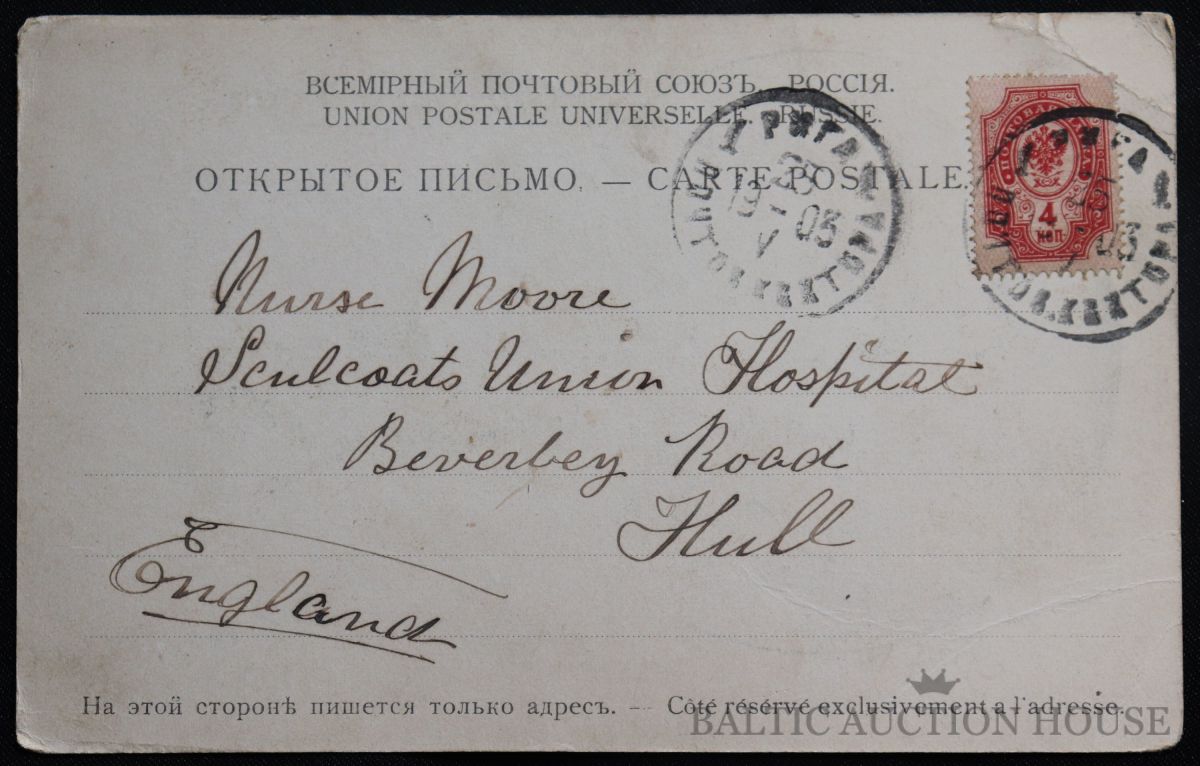 ВСЕМІРНЫЙ ПОЧТОВЫЙ СОЮЗЪ. РОССІЯ.
UNION POSTALE UNIVERSELLE. RUSSIE.
ОТКРЫТОЕ ПИСЬМО. — CARTE POSTALE.
РИГА
19 V 03
4
КОП.
РИГА
03
Nurse Moore
Sculcoats Union Hospital
Beverley Road
Hull
England
На этой сторонѣ пишется только адресъ. — Côté réservé exclusivement a l'adresse.
BALTIC AUCTION HOUSE